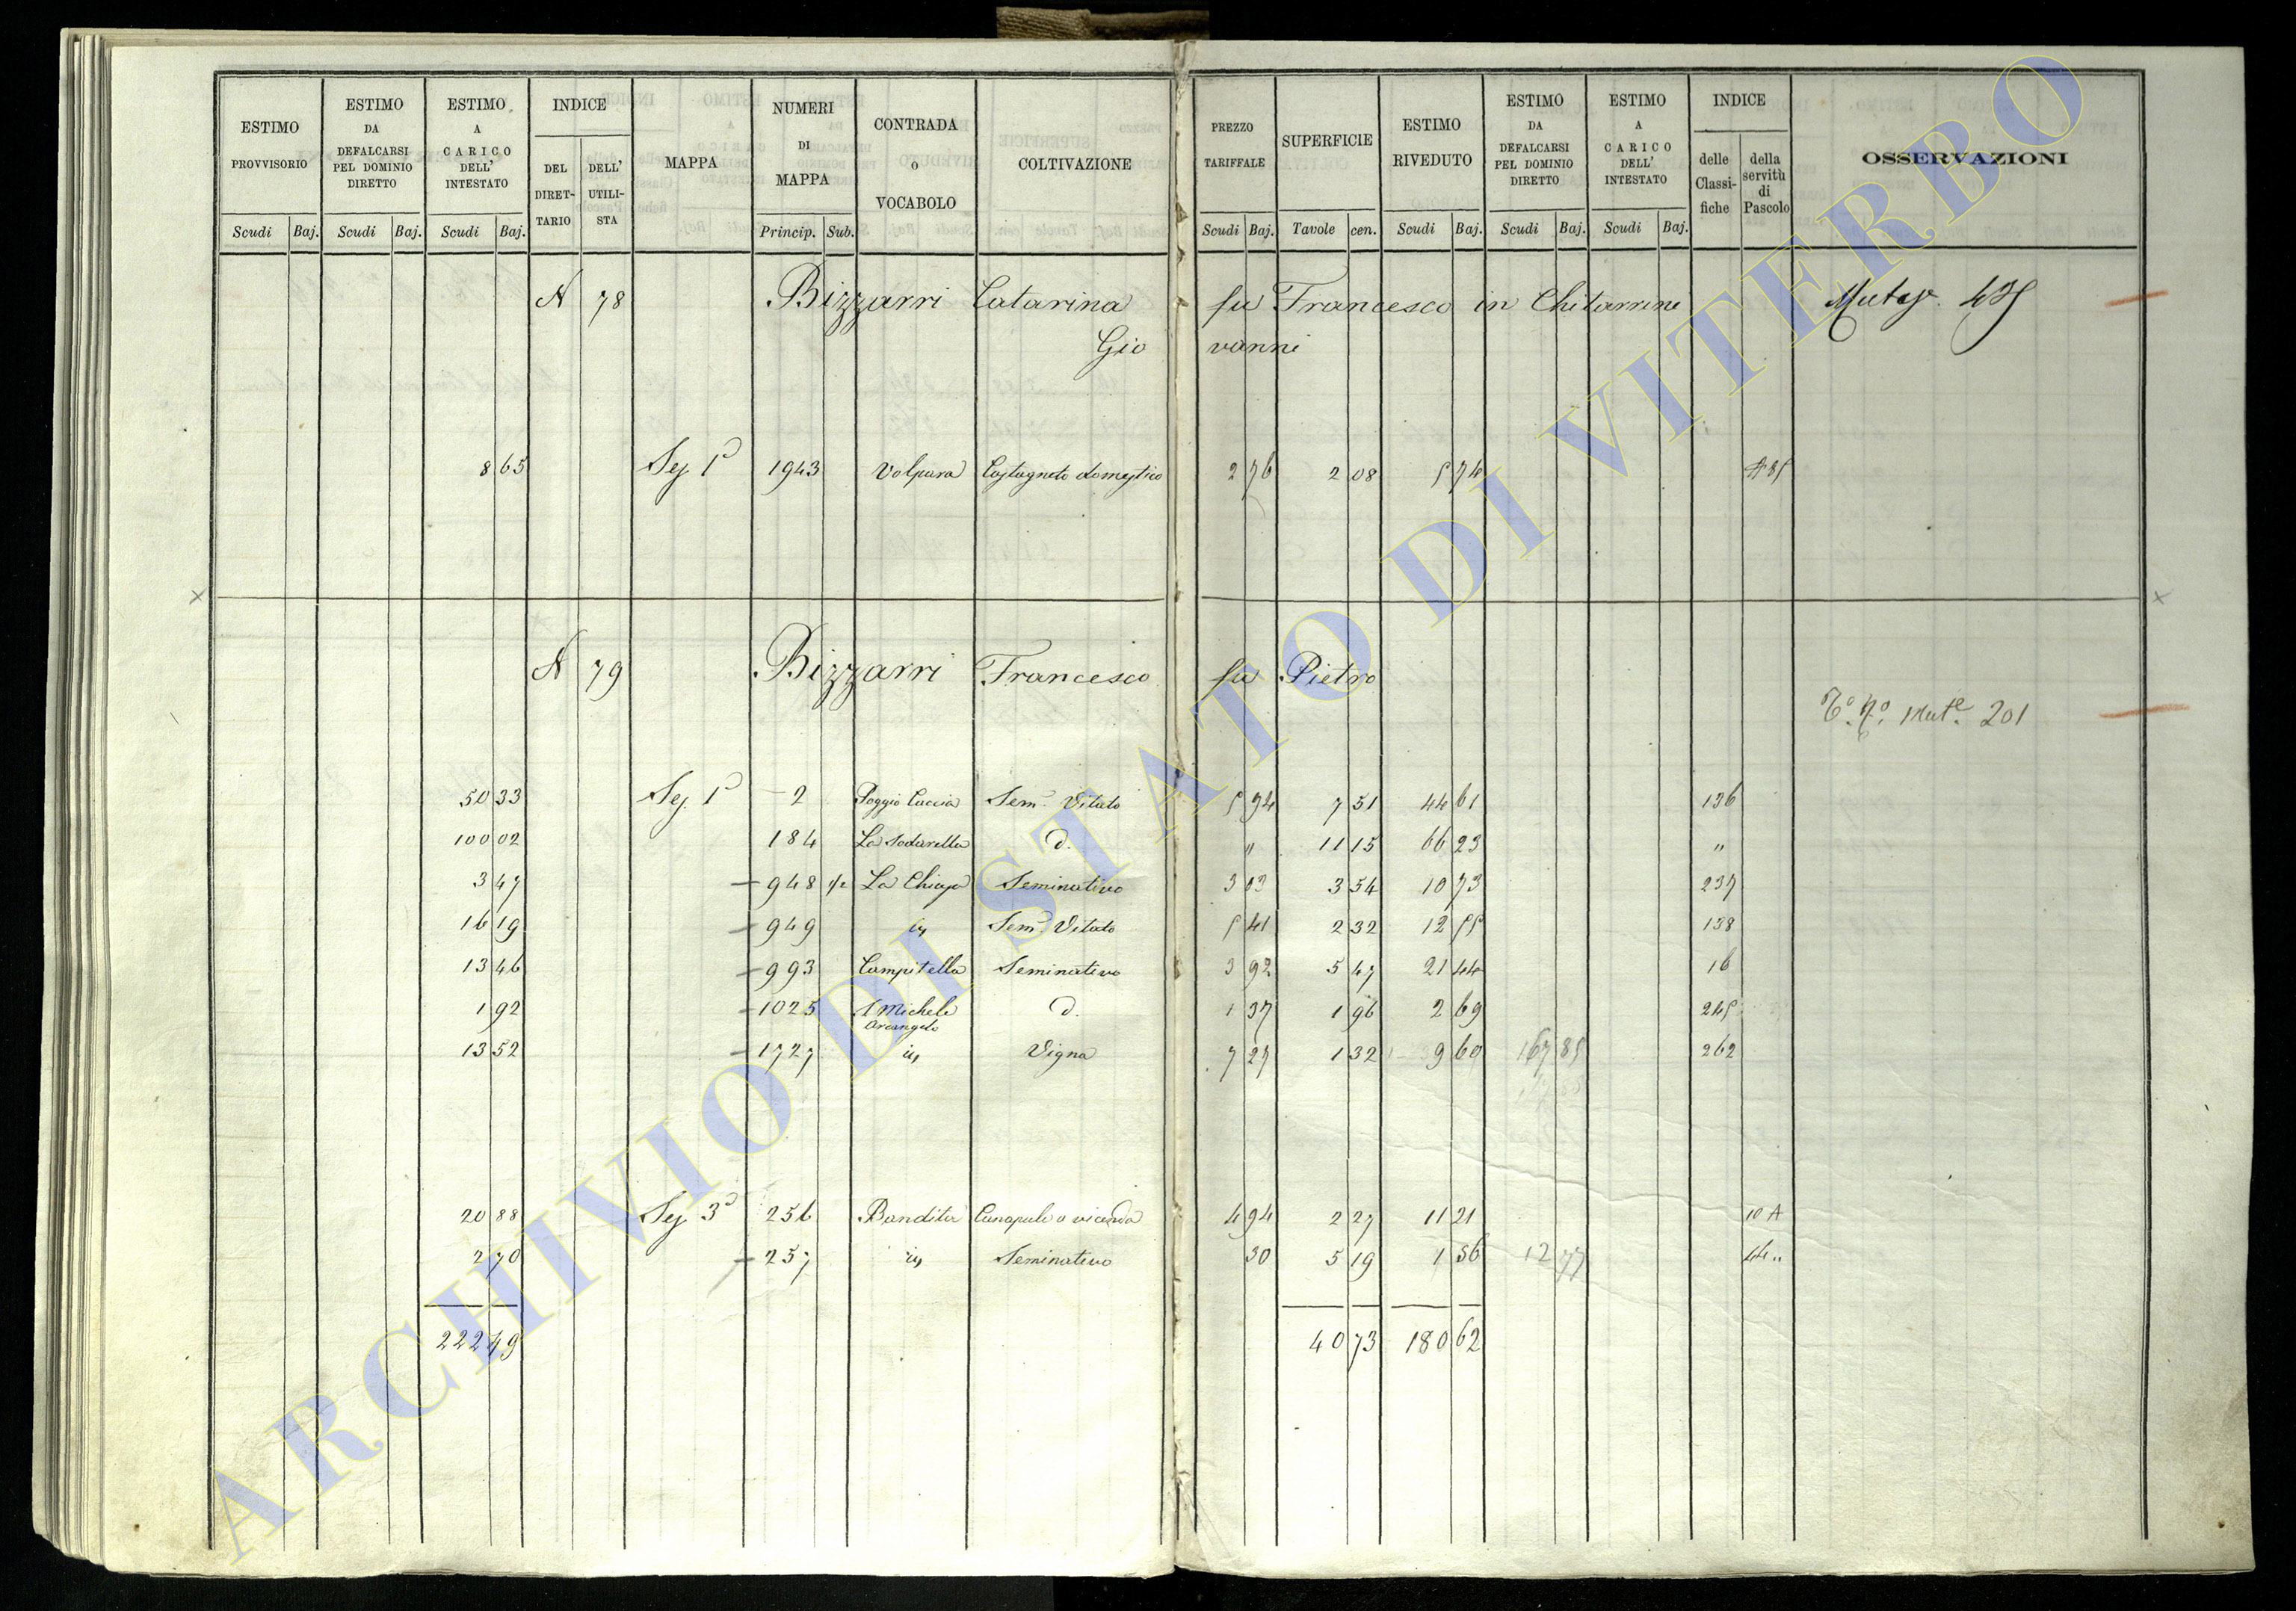 ESTIMO PROVVISORIO
ESTIMO DA DEFALCARSI PEL DOMINIO DIRETTO
ESTIMO A CARICO DELL' INTESTATO
INDICE
DEL DIRET-TARIO
DELL' UTILI-STA
MAPPA
NUMERI DI MAPPA
CONTRADA o VOCABOLO
COLTIVAZIONE
PREZZO TARIFFALE
SUPERFICIE
ESTIMO RIVEDUTO
ESTIMO DA DEFALCARSI PEL DOMINIO DIRETTO
ESTIMO A CARICO DELL' INTESTATO
INDICE
delle Classi-fiche
della servitù di Pascolo
OSSERVAZIONI
Scudi Baj. Scudi Baj. Scudi Baj. Princip. Sub. Scudi Baj. Tavole cen. Scudi Baj. Scudi Baj. Scudi Baj.
N 78 Bizzarri Catarina fu Francesco in Chitarrini
Gio vanni
8 65 Sez 1ª 1943 Volpara Castagneto domestico 2 76 2 08 5 74
N 79 Bizzarri Francesco fu Pietro
Mut.e 201
50 33 Sez 1ª 2 Poggio Caccia Sem. Vitato 5 94 7 51 44 61 136
100 02 184 La Sodarella d. " 11 15 66 23 "
3 47 948 1/2 La Chiusa Seminativo 3 03 3 54 10 73 237
16 19 949 in Sem. Vitato 5 41 2 32 12 55 138
13 46 993 Campitella Seminativo 3 92 5 47 21 44 16
1 92 1025 S Michele Arcangelo d. 1 37 1 96 2 69 245
13 52 1727 in Vigna 7 27 1 32 9 60 167 85 262
20 88 Sez 3ª 256 Bandita Canapule a vicenda 4 94 2 27 11 21 10 A
2 70 257 in Seminativo 30 5 19 1 56 12 77 44 "
222 49 40 73 180 62
ARCHIVIO DI STATO DI VITERBO